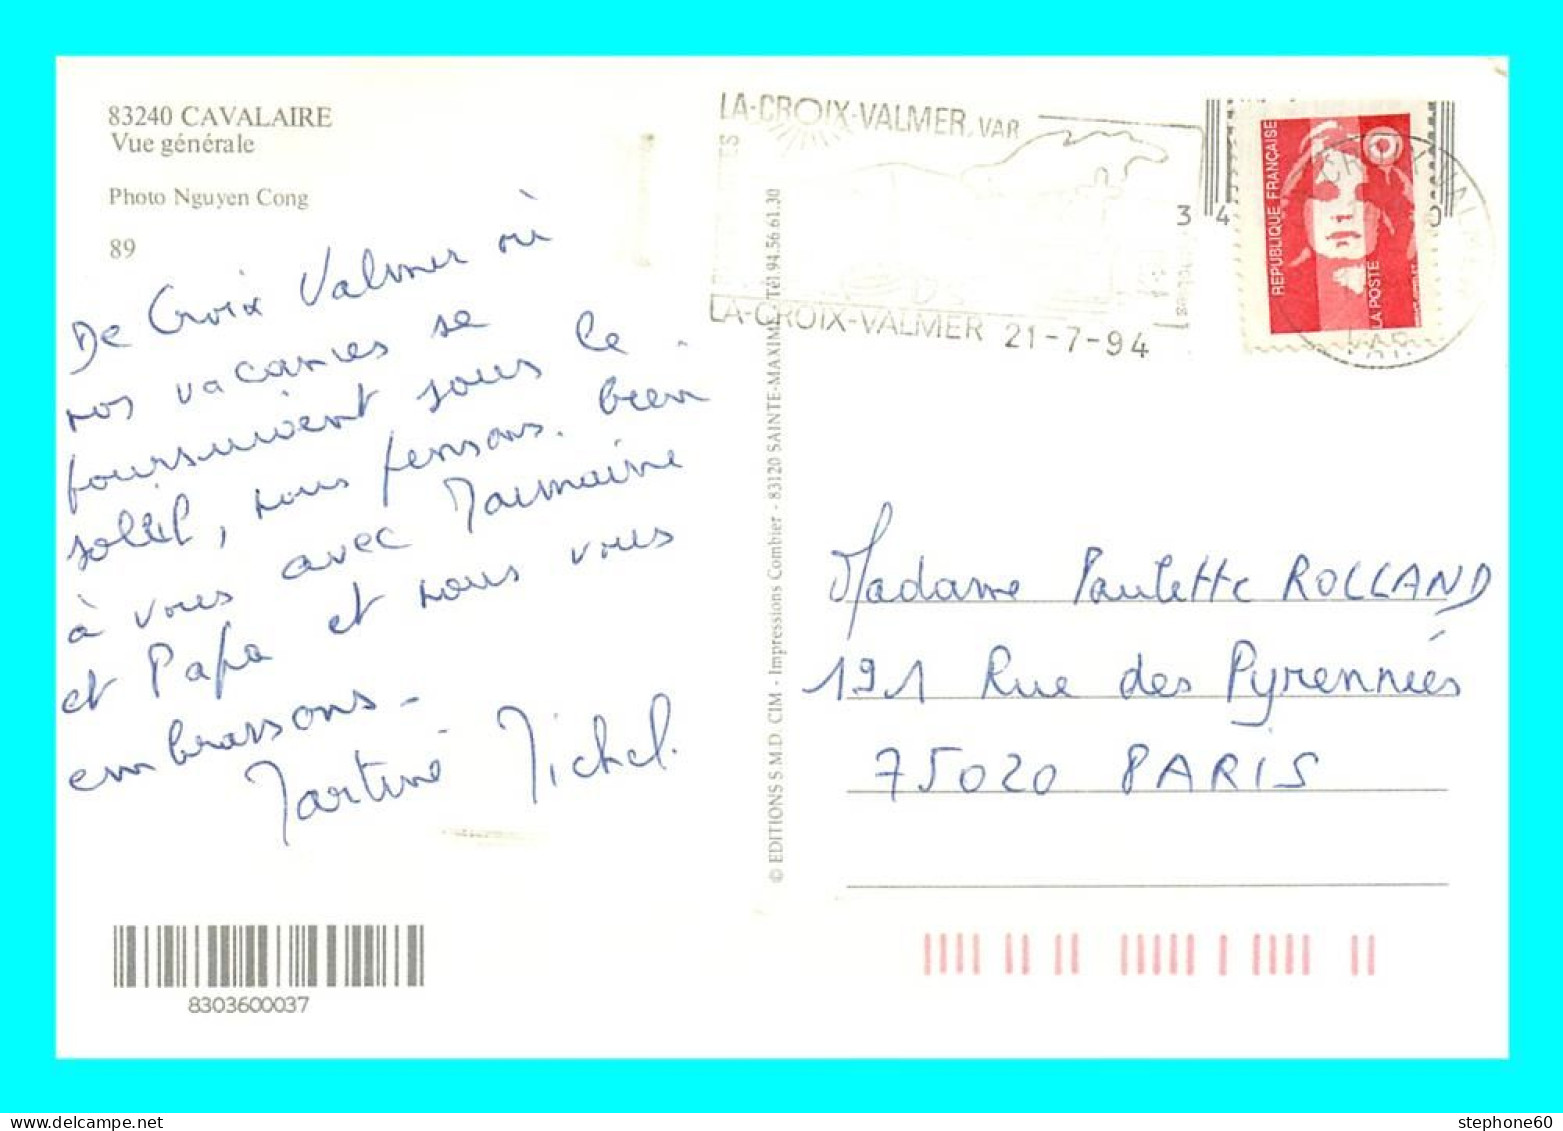 83240 CAVALAIRE
Vue générale
Photo Nguyen Cong
89
De Croix Valmer où
nos vacances se
poursuivent sous le
soleil, nous pensons bien
à vous avec
et Papa et nous vous
embrassons -
Martine Michel.
8303600037
© EDITIONS S.M.D. CIM - Impressions Combier - 83120 SAINTE-MAXIME - Tél. 94.56.61.30
LA-CROIX-VALMER, VAR
LA-CROIX-VALMER 21-7-94
3 4 0
REPUBLIQUE FRANÇAISE
LA POSTE
Madame Paulette ROLLAND
191 Rue des Pyrennées
75020 PARIS
stephone60